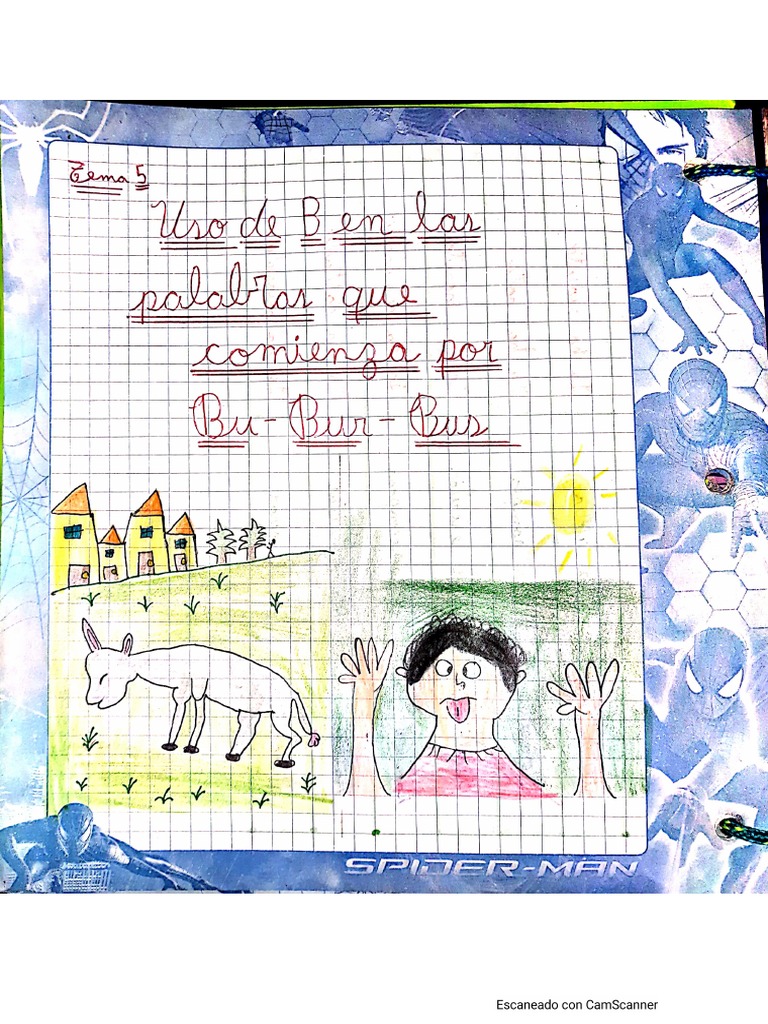 Tema 5
Uso de B en las
palabras que
comienza por
Bu - Bur - Bus
SPIDER-MAN
Escaneado con CamScanner